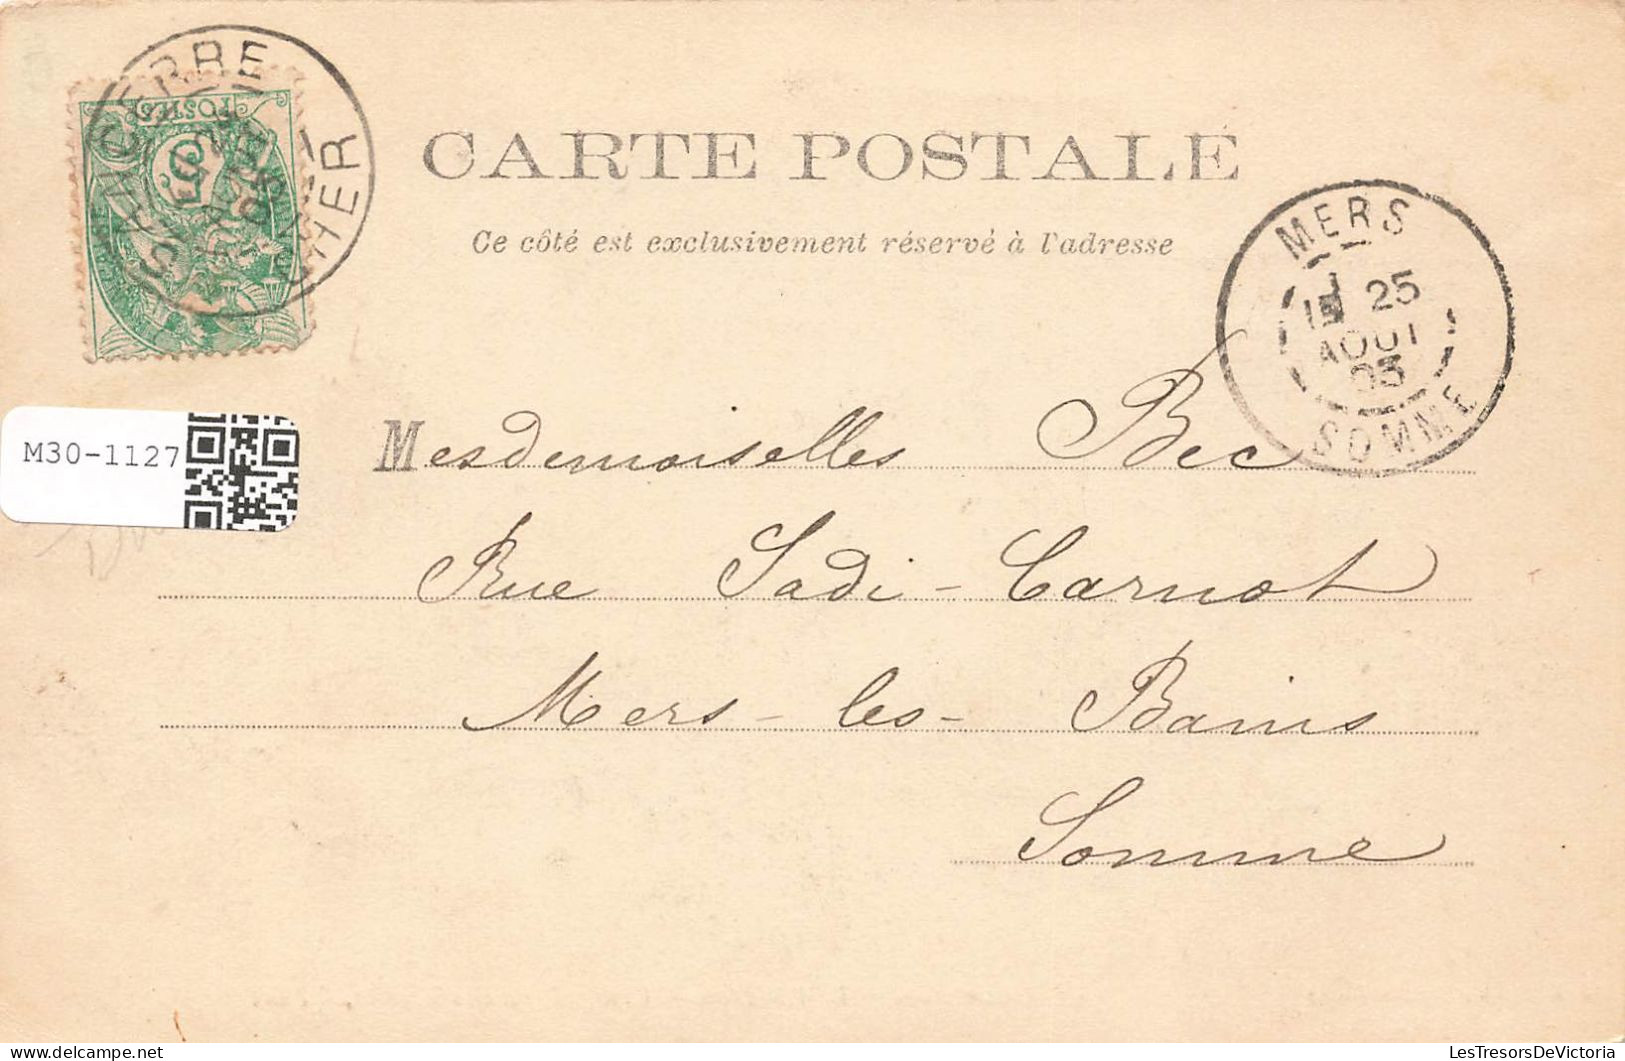 SANCERRE
CHER
POSTES
5
CARTE POSTALE
Ce côté est exclusivement réservé à l'adresse
MERS
25
AOUT
03
SOMME
M30-1127
Mesdemoiselles Bec
Rue Sadi-Carnot
Mers-les-Bains
Somme
LesTresorsDeVictoria